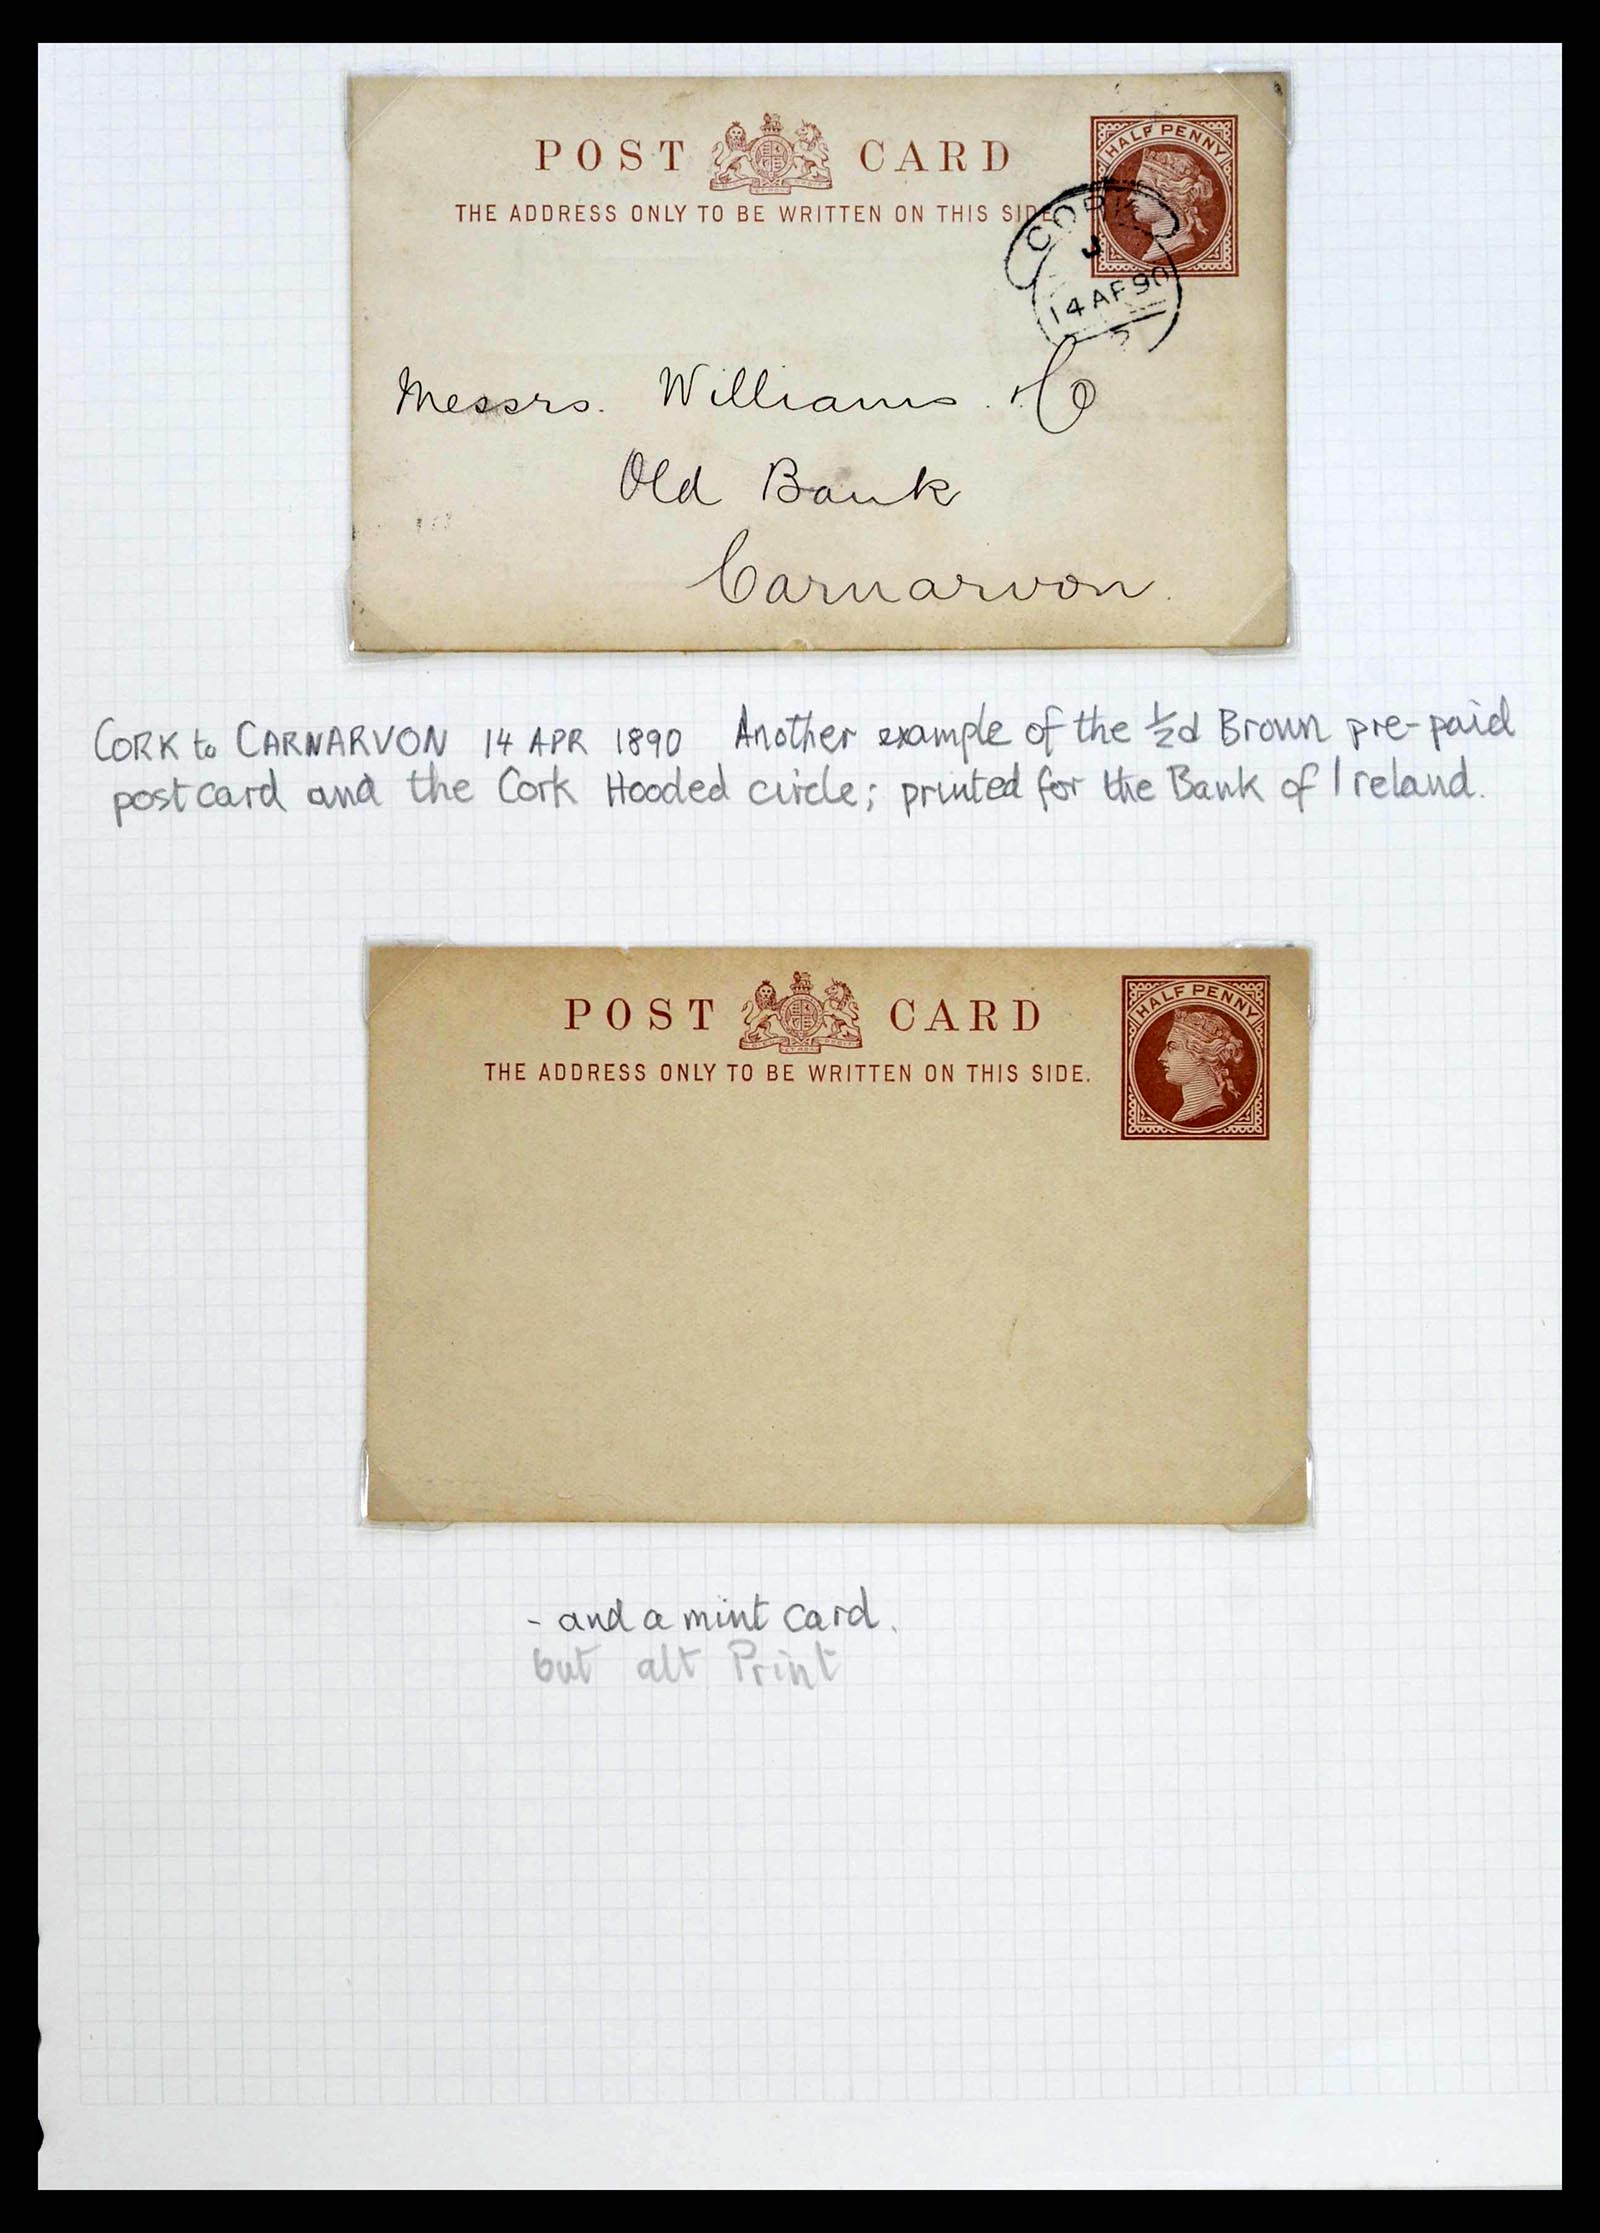 POST CARD
HALF PENNY
THE ADDRESS ONLY TO BE WRITTEN ON THIS SIDE
CORK
J
14 AP 90
Messrs. Williams & Co
Old Bank
Carnarvon.
CORK to CARNARVON 14 APR 1890 Another example of the ½d Brown pre-paid
postcard and the Cork Hooded circle; printed for the Bank of Ireland.
POST CARD
HALF PENNY
THE ADDRESS ONLY TO BE WRITTEN ON THIS SIDE.
- and a mint card.
but alt Print